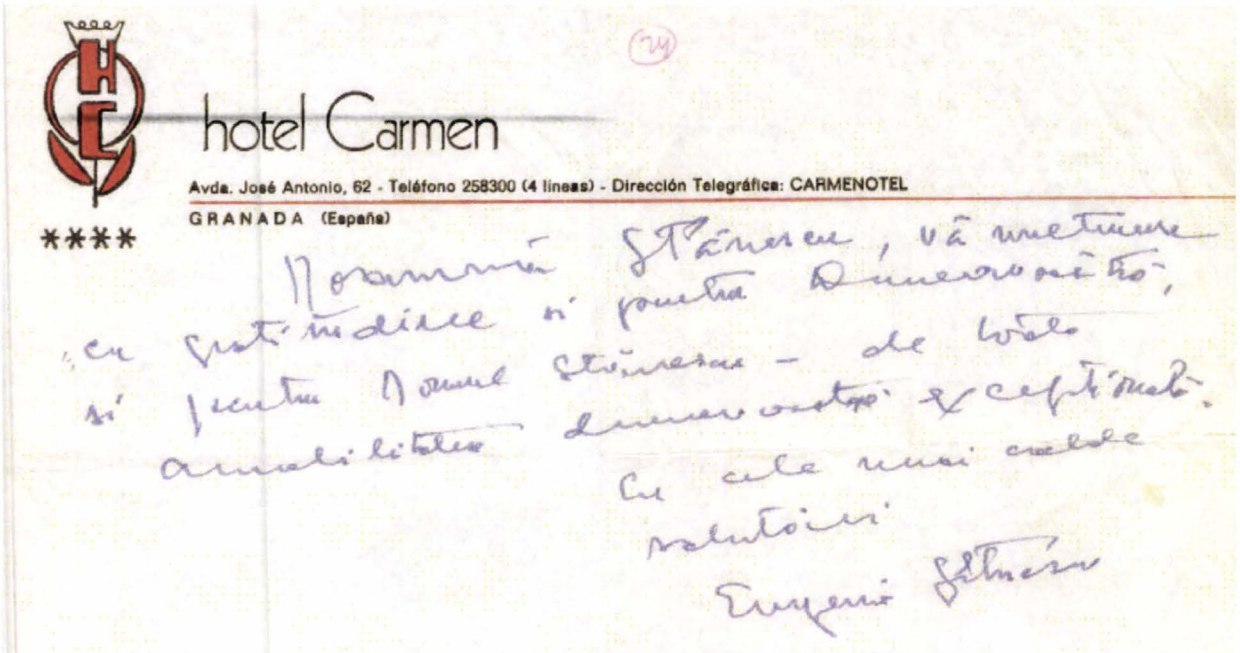 24
HC
hotel Carmen
Avda. José Antonio, 62 - Teléfono 258300 (4 líneas) - Dirección Telegráfica: CARMENOTEL
GRANADA (España)
****
Doamnă Stănescu, vă
cu gratitudine si pentru Dumneavoastră,
si pentru Domnul Stănescu – de toată
amabilitatea dumneavoastră excepțională.
Cu cele mai calde
salutări
Eugenia